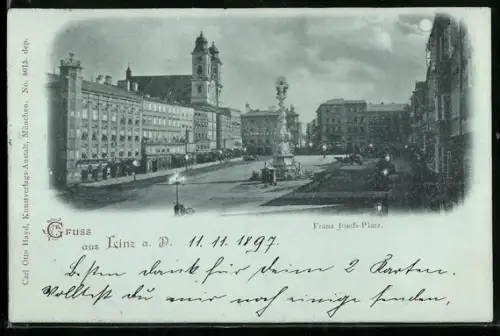 Carl Otto Hayd, Kunstverlags-Anstalt, München. No. 5015. dep.
Franz Josefs-Platz.
Gruss
aus Linz a. D. 11. 11. 1897.
Besten dank für deine 2 Karten.
Wolltest du mir noch einige senden,